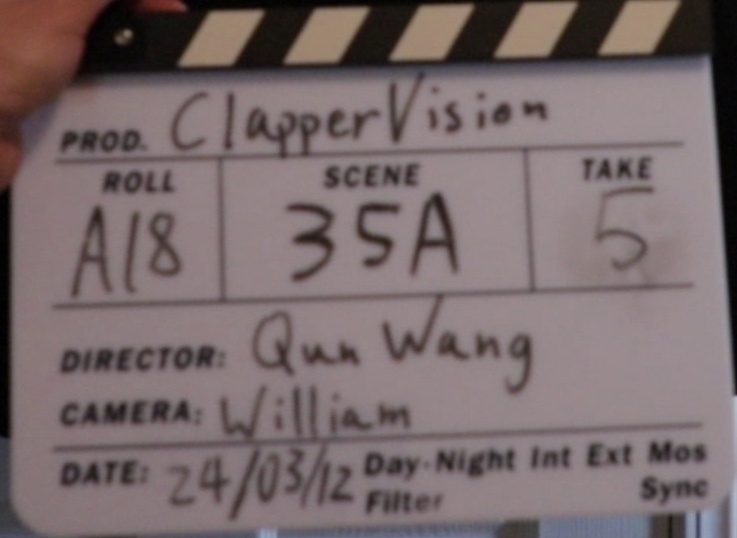 PROD. ClapperVision
ROLL SCENE TAKE
A18 35A 5
DIRECTOR: Qun Wang
CAMERA: William
DATE: 24/03/12 Day-Night Int Ext Mos
Filter Sync